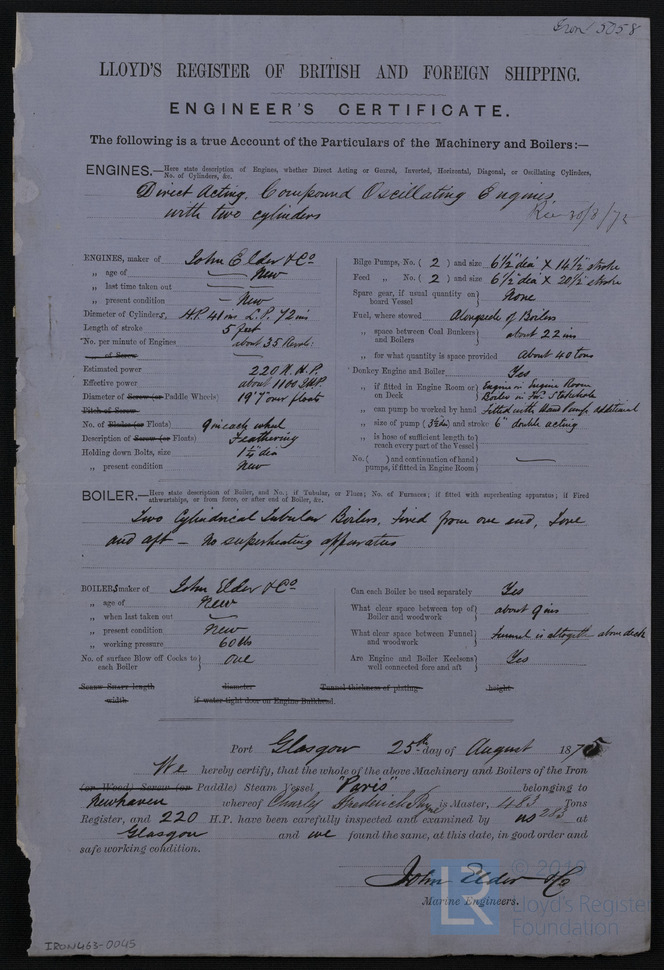 Iron 5058
LLOYD'S REGISTER OF BRITISH AND FOREIGN SHIPPING.
ENGINEER'S CERTIFICATE.
The following is a true Account of the Particulars of the Machinery and Boilers:—
ENGINES.—Here state description of Engines, whether Direct Acting or Geared, Inverted, Horizontal, Diagonal, or Oscillating Cylinders, No. of Cylinders, &c.
Direct Acting. Compound Oscillating Engines,
with two cylinders
30/8/75
ENGINES, maker of John Elder & Co
„ age of — New
„ last time taken out —
„ present condition — New
Diameter of Cylinders, H.P. 41 ins L.P. 72 ins
Length of stroke 5 feet
No. per minute of Engines about 35 Revol:
of Screw —
Estimated power 220 N.H.P.
Effective power about 1100 IHP
Diameter of Screw (or Paddle Wheels) 19'7" over floats
Pitch of Screw
No. of Blades (or Floats) 9 in each wheel
Description of Screw (or Floats) Feathering
Holding down Bolts, size 1½" dia
„ present condition New
Bilge Pumps, No. ( 2 ) and size 6½" dia X 14½" stroke
Feed „ No. ( 2 ) and size 6½" dia X 20½" stroke
Spare gear, if usual quantity on board Vessel } None
Fuel, where stowed Alongside of Boilers
„ space between Coal Bunkers and Boilers } about 22 ins
„ for what quantity is space provided About 40 tons
Donkey Engine and Boiler Yes
„ if fitted in Engine Room or on Deck } Engine in Engine Room
Boiler in For. Stokehole
„ can pump be worked by hand fitted with Hand Pump additional
„ size of pump (3½ dia) and stroke 6" double acting
„ is hose of sufficient length to reach every part of the Vessel }
No. ( ) and continuation of hand pumps, if fitted in Engine Room } —
BOILER.—Here state description of Boiler, and No.; if Tubular, or Flues; No. of Furnaces; if fitted with superheating apparatus; if Fired athwartships, or from fore, or after end of Boiler, &c.
Two Cylindrical Tubular Boilers, fired from one end, Fore
and aft — No superheating apparatus
BOILERS maker of John Elder & Co
„ age of New
„ when last taken out —
„ present condition New
„ working pressure 60 lbs
No. of surface Blow off Cocks to each Boiler } one
Can each Boiler be used separately Yes
What clear space between top of Boiler and woodwork } about 9 ins
What clear space between Funnel and woodwork } Funnel is altogether above deck
Are Engine and Boiler Keelsons well connected fore and aft } Yes
Screw Shaft length diameter Tunnel thickness of plating height
width if water-tight door on Engine Bulkhead
Port Glasgow 25th day of August 1875
We hereby certify, that the whole of the above Machinery and Boilers of the Iron
(or Wood) Screw (or Paddle) Steam Vessel "Paris" belonging to
Newhaven whereof Charly Frederick is Master, 483 Tons
Register, and 220 H.P. have been carefully inspected and examined by us 283 at
Glasgow and we found the same, at this date, in good order and
safe working condition.
John Elder & Co
Marine Engineers.
© 2019
LR
Lloyd's Register
Foundation
IRON463-0045